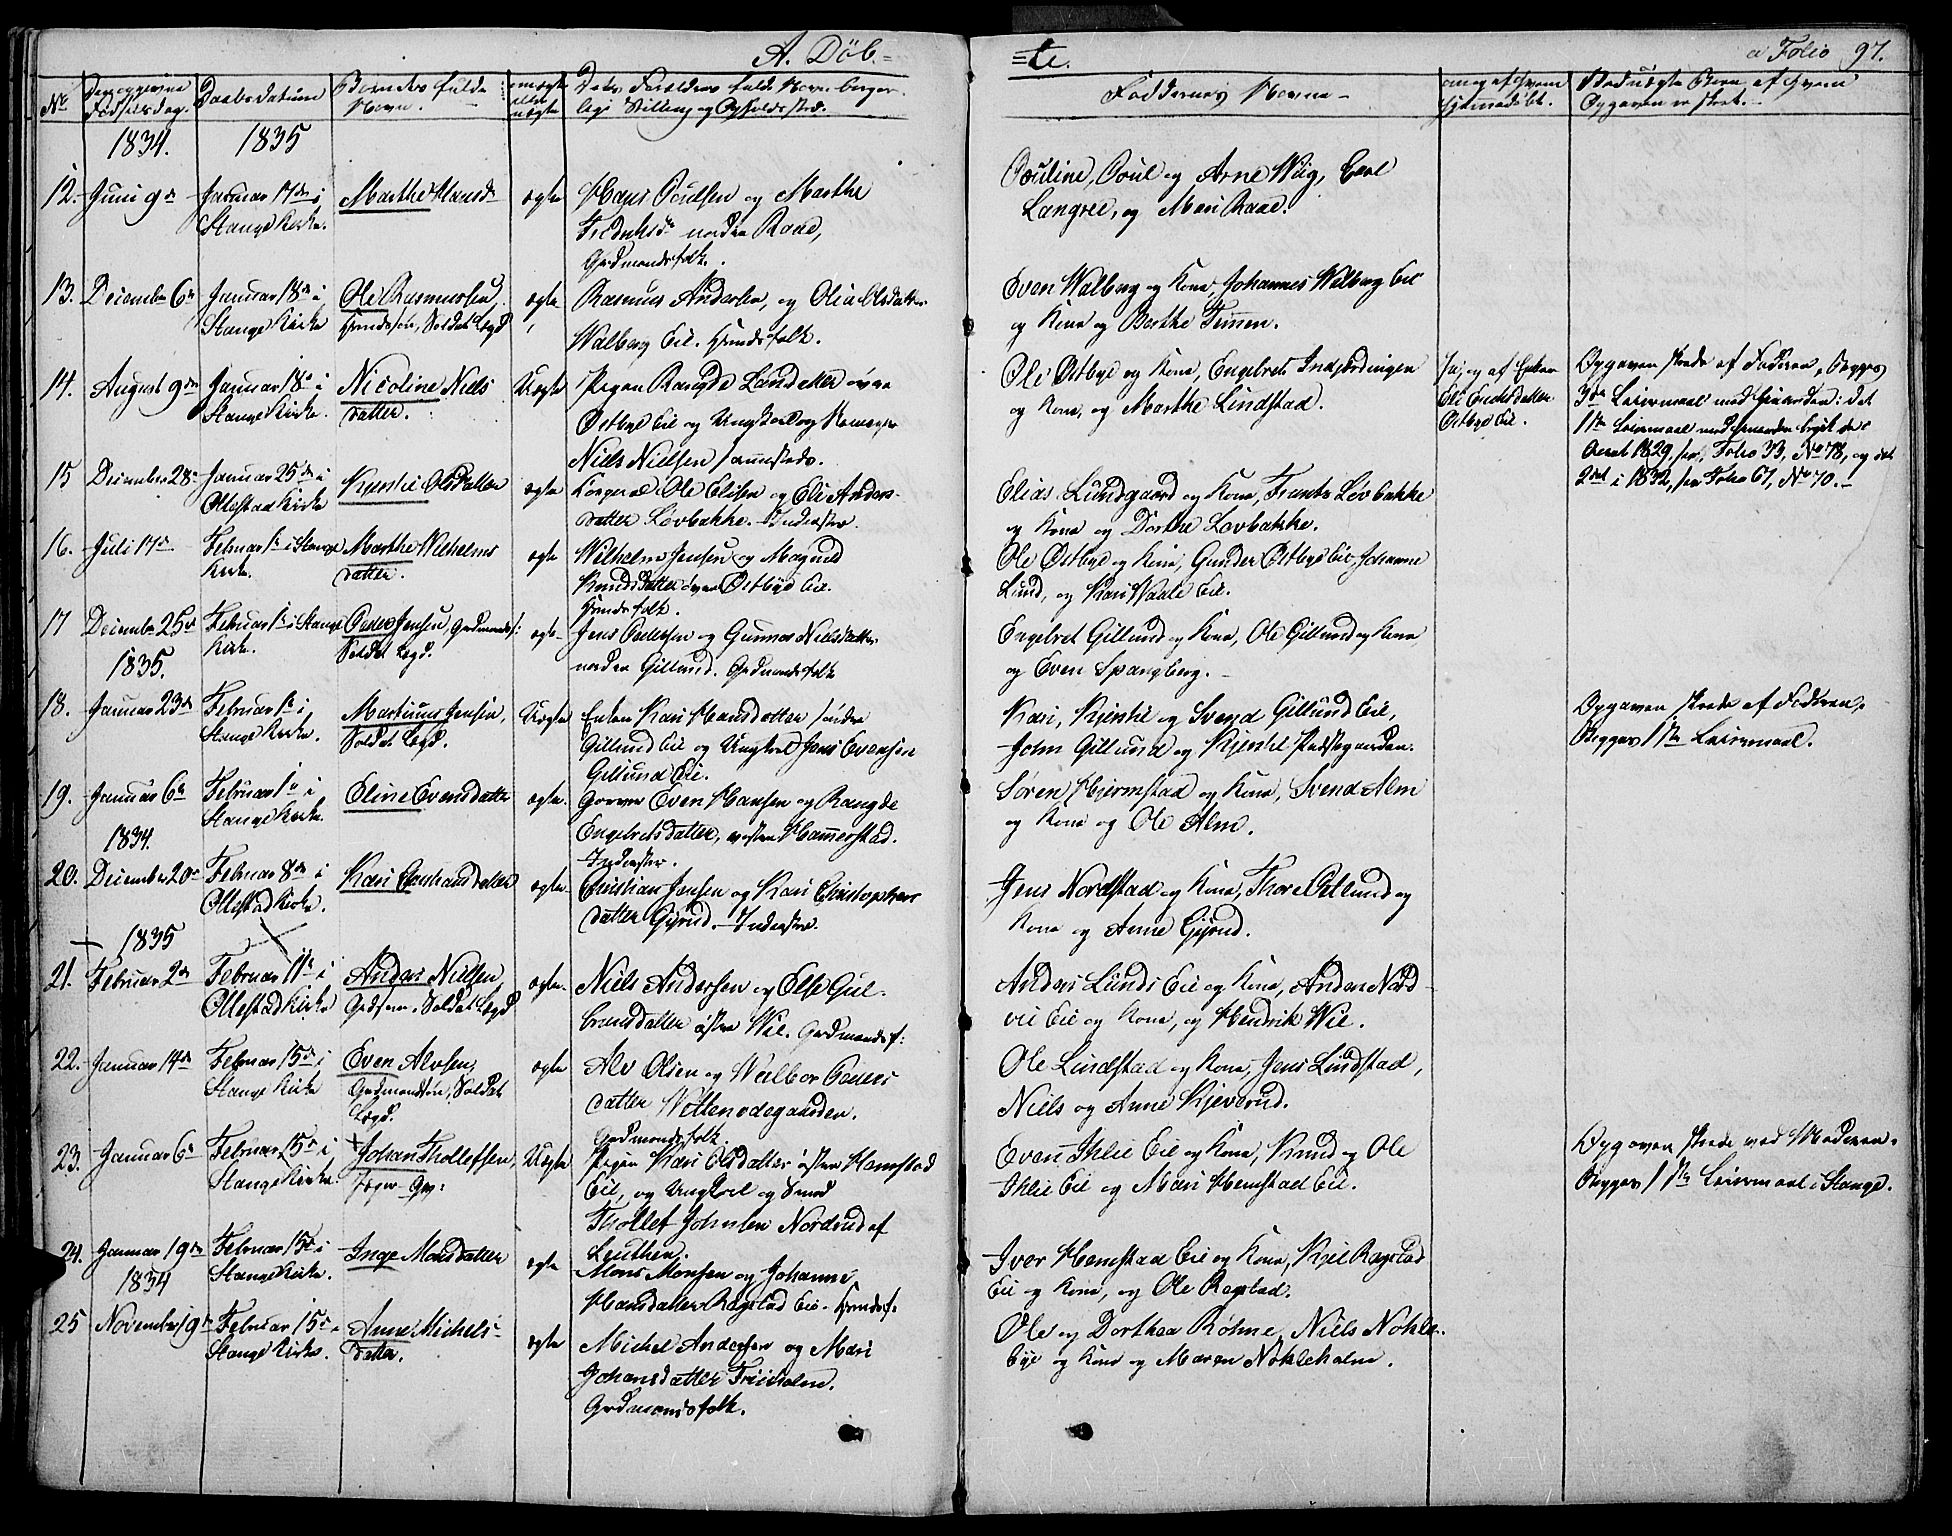 A. Döb-
=te.
a Folio 97.
No
Fødselsdag.
Daabsdatum
Barnets fulde
Navn.
ægte
eller
uægte
Faddernes Navne
hjemmedøbt.
1834.
1835
12. Juni 9de
Januar 17de i
Stange Kirke.
Marthe Hansd.
ægte
Hans Poulsen og Marthe
nordre Raae,
Gaardmandsfolk.
Pouline, Poul og Arne Wiig,
Langree, og Mari Raae.
13. December 6te
Januar 18de i
Stange Kirke
Ole Rasmussen,
Huusmandssøn, Soldat Lægd
ægte
Rasmus Andersen, og Olea Olsdatter
Walberg Eie. Huusmandsfolk.
Even Walberg og Kone, Johannes Walberg Eie
og Kone og Berthe Timen.
14. August 9de
Januar 18de i
Stange Kirke.
Nicoline Niels
datter.
Uægte
Pigen Rangde
Østbye Eie og Ungkarl og
Niels Nielsen sammesteds.
Ole Østbye og Kone, Engebret
og Kone, og Marthe Lindstad.
Østbye Eie.
Opgaven skede af Faderen, Begges
3die Leiermaal med hinanden: det
1ste Leiermaal med hinanden
Aaret 1829, see Folio 33, No 78, og det
2det i 1832, see Folio 61, No 70.
15 December 28de
Januar 25de i
Ottestad Kirke
Kjersti Olsdatter
ægte
Ole Elisen og Eli Anders-
datter Løvbakke. Inderster.
Elias Lundgaard og Kone, Frants Løvbakke
og Kone og Dorthe Løvbakke.
16. Juli 17de
Februar 1ste i Stange
Kirke.
Marthe Wilhelms
datter.
ægte
Wilhelm Jensen og Magnild
Knudsdatter øvre Østbye Eie.
Huusmandsfolk.
Ole Østbye og Kone, Gunder Østbye Eie, Johanne
Lund, og Kari Waale Eie.
17 December 25de
Februar 1ste i Stange
Kirke.
Peder Jensen, Gaardmandss:
Soldat Lægd.
ægte
Jens Pedersen og Gunnor Nielsdatter
nordre Gillund. Gaardmandsfolk
Engebret Gillund og Kone, Ole Gillund og Kone
og Even Spangberg.
1835.
18. Januar 23de
Februar 1ste i
Stange Kirke.
Martinus Jensen,
Soldat Lægd.
Uægte
Enken Kari Hansdatter søndre
Gillund Eie og Ungkarl Jens Evensen
Gillund Eie.
Kari, Kjersti og Svend Gillund Eie,
John Gillund og Kjersti Præstegaarden.
Opgaven skede af Faderen,
Begges 1ste Leiermaal.
19. Januar 6te
Februar 1ste i
Stange Kirke.
Eline Evensdatter
ægte.
Even Hansen og Rangde
Engebretsdatter, vestre Hammerstad.
Inderster.
Søren Hjermstad og Kone, Svend Alm
og Kone og Ole Alm.
1834.
20. December 20de
Februar 8de i
Ottestad Kirke.
Kari Christiansdatter
ægte
Christian Jensen og Kari Christophers
datter Gjørud. Inderster.
Jens Nordstad og Kone, Thore Gillund og
Kone og Anne Gjørud.
1835
21. Februar 2den
Februar 11te i
Ottestad Kirke
Anders Nielsen
Gaardsøn. Soldat Lægd
ægte.
Niels Andersen og Else Gul-
brandsdatter østre Wie. Gaardmandsf:
Anders Lunds Eie og Kone, Anders Nord-
vie Eie og Kone, og Hendrik Wie.
22. Januar 14de
Februar 15de i
Stange Kirke
Even Alvsen,
Gaardmandssøn, Soldat
Lægd.
ægte
Alv Olsen og Walbor Peders
datter Wettenødegaarden.
Gaardmandsfolk.
Ole Lindstad og Kone, Jens Lindstad,
Niels og Anne Kjeverud.
23. Januar 6te
Februar 15de i
Stange Kirke.
Johan Thollefsen,
Uægte
Pigen Kari Olsdatter østre Hemstad
Eie, og Ungkarl og Smed
Thollef Johnsen Nordrud af
Leuthen.
Even Ihlie Eie og Kone, Knud og Ole
Ihlie Eie og Mari Hemstad Eie.
Opgaven skede ved Moderen.
Begges 1ste Leiermaal i Stange.
24. Januar 19de
Februar 15de i
Stange Kirke.
Inge Monsdatter
ægte
Mons Monsen og Johanne
Hansdatter Ragstad Eie. Huusmandsf:
Iver Hemstad Eie og Kone, Kjel Ragstad
Eie og Kone, og Ole Ragstad.
1834
25 November 19de
Februar 15de i
Stange Kirke.
Anne Michels-
datter.
ægte
Michel Andersen og Mari
Johansdatter
Gaardmandsfolk.
Ole og Dorthea Röhne, Niels Nokle-
bye og Kone og Maren Nokleholm.